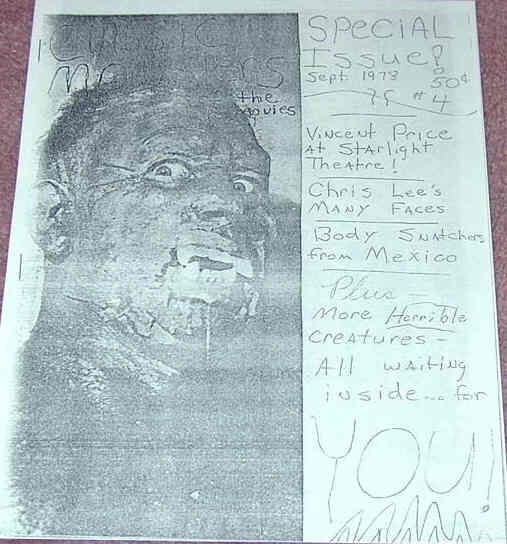 CLASSIC
the
movies
SPECIAL
ISSUE!
Sept 1978
50¢
#4
Vincent Price
at Starlight
Theatre!
Chris Lee's
Many Faces
Body Snatchers
from Mexico
Plus -
More Horrible
creatures -
All waiting
inside... for
YOU!